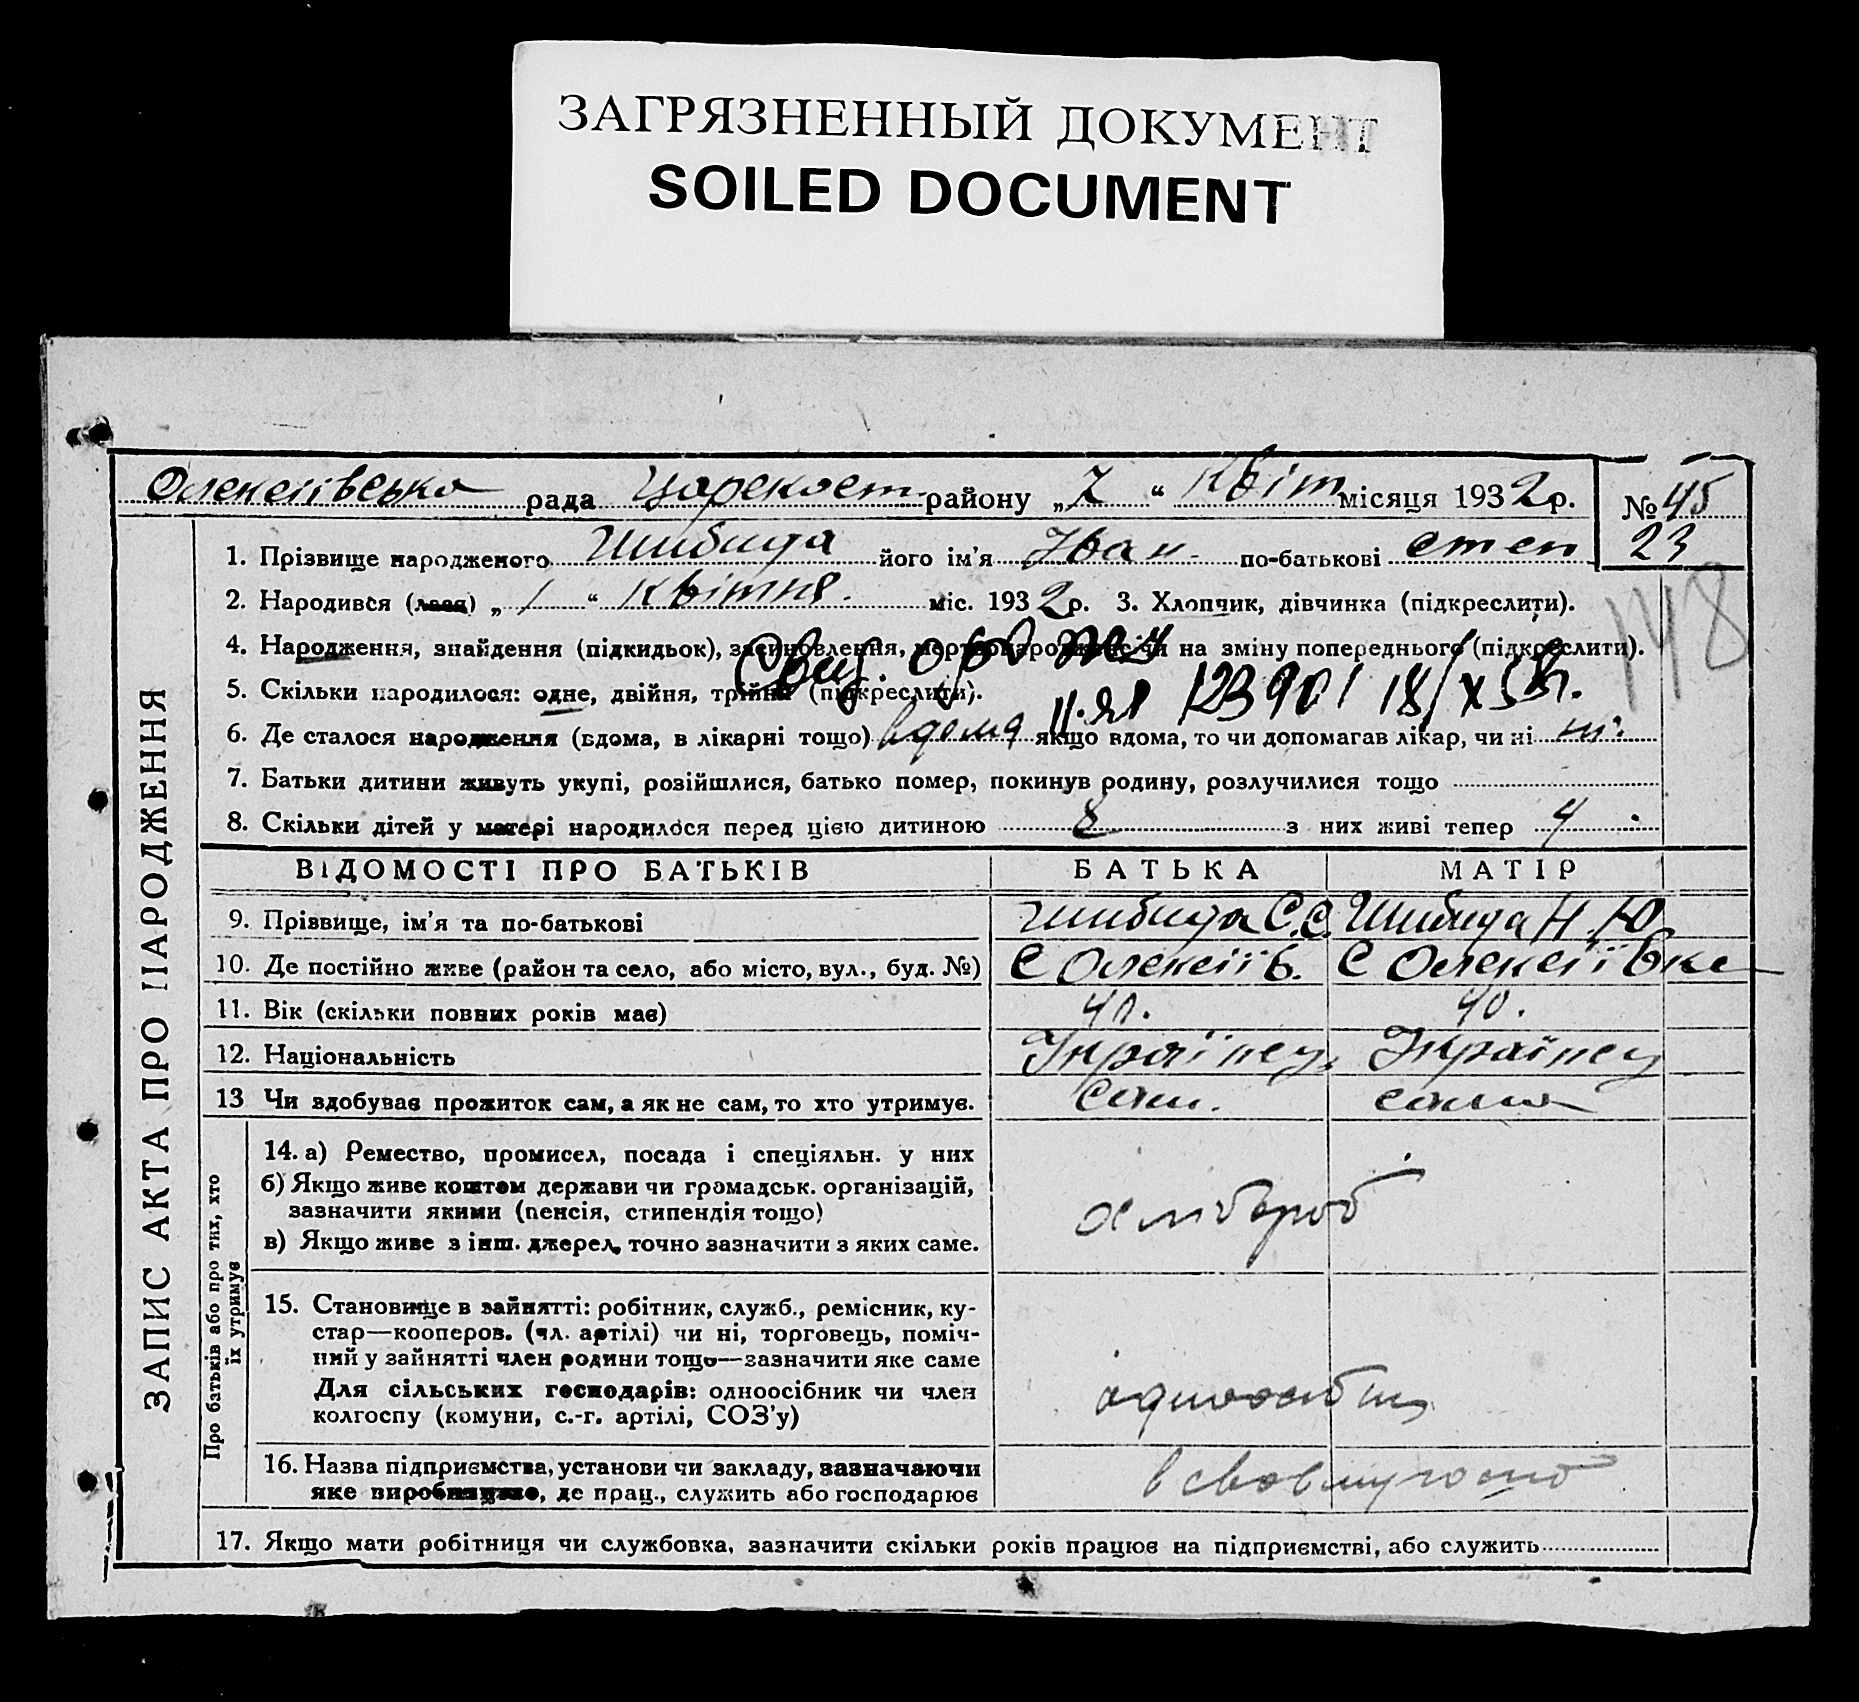 ЗАГРЯЗНЕННЫЙ ДОКУМЕНТ
SOILED DOCUMENT
Олексіївська рада Царекост району „7“ Квіт місяця 1932р. № 45
23
148
ЗАПИС АКТА ПРО НАРОДЖЕННЯ
1. Прізвище народженого Шибида його ім'я Іван по-батькові Степ
2. Народився (лася) „1“ Квітня. міс. 1932р. 3. Хлопчик, дівчинка (підкреслити).
4. Народження, знайдення (підкидьок), засиновлення, мертвонароджене чи на зміну попереднього (підкреслити).
5. Скільки народилося: одне, двійня, трійня (підкреслити).
123901 18/X
6. Де сталося народження (вдома, в лікарні тощо) вдома якщо вдома, то чи допомагав лікар, чи ні ні
7. Батьки дитини живуть укупі, розійшлися, батько помер, покинув родину, розлучилися тощо
8. Скільки дітей у матері народилося перед цією дитиною 8 з них живі тепер 4
ВІДОМОСТІ ПРО БАТЬКІВ БАТЬКА МАТІР
9. Пріввище, ім'я та по-батькові Шибида С.С. Шибида Н.Ю
10. Де постійно живе (район та село, або місто, вул., буд. №) С Олексіїв. С Олексіївке
11. Вік (скільки повних років має) 40.
12. Національність Українец Українец
13 Чи здобуває прожиток сам, а як не сам, то хто утримує. Сам. сама
Про батьків або про тих, хто
їх утримує
14. а) Ремество, промисел, посада і спеціяльн. у них
б) Якщо живе коштом держави чи громадськ. організацій,
зазначити якими (пенсія, стипендія тощо)
в) Якщо живе з інш. джерел, точно зазначити з яких саме.
хлібороб
15. Становище в зайнятті: робітник, служб., ремісник, ку-
стар—кооперов. (чл. артілі) чи ні, торговець, поміч-
ний у зайнятті член родини тощо—зазначити яке саме
Для сільських господарів: одноосібник чи член
колгоспу (комуни, с.-г. артілі, СОЗ'у)
одноосібн
16. Назва підприємства, установи чи закладу, зазначаючи
яке виробництво, де прац., служить або господарює
в своему госпо
17. Якщо мати робітниця чи службовка, зазначити скільки років працює на підприємстві, або служить